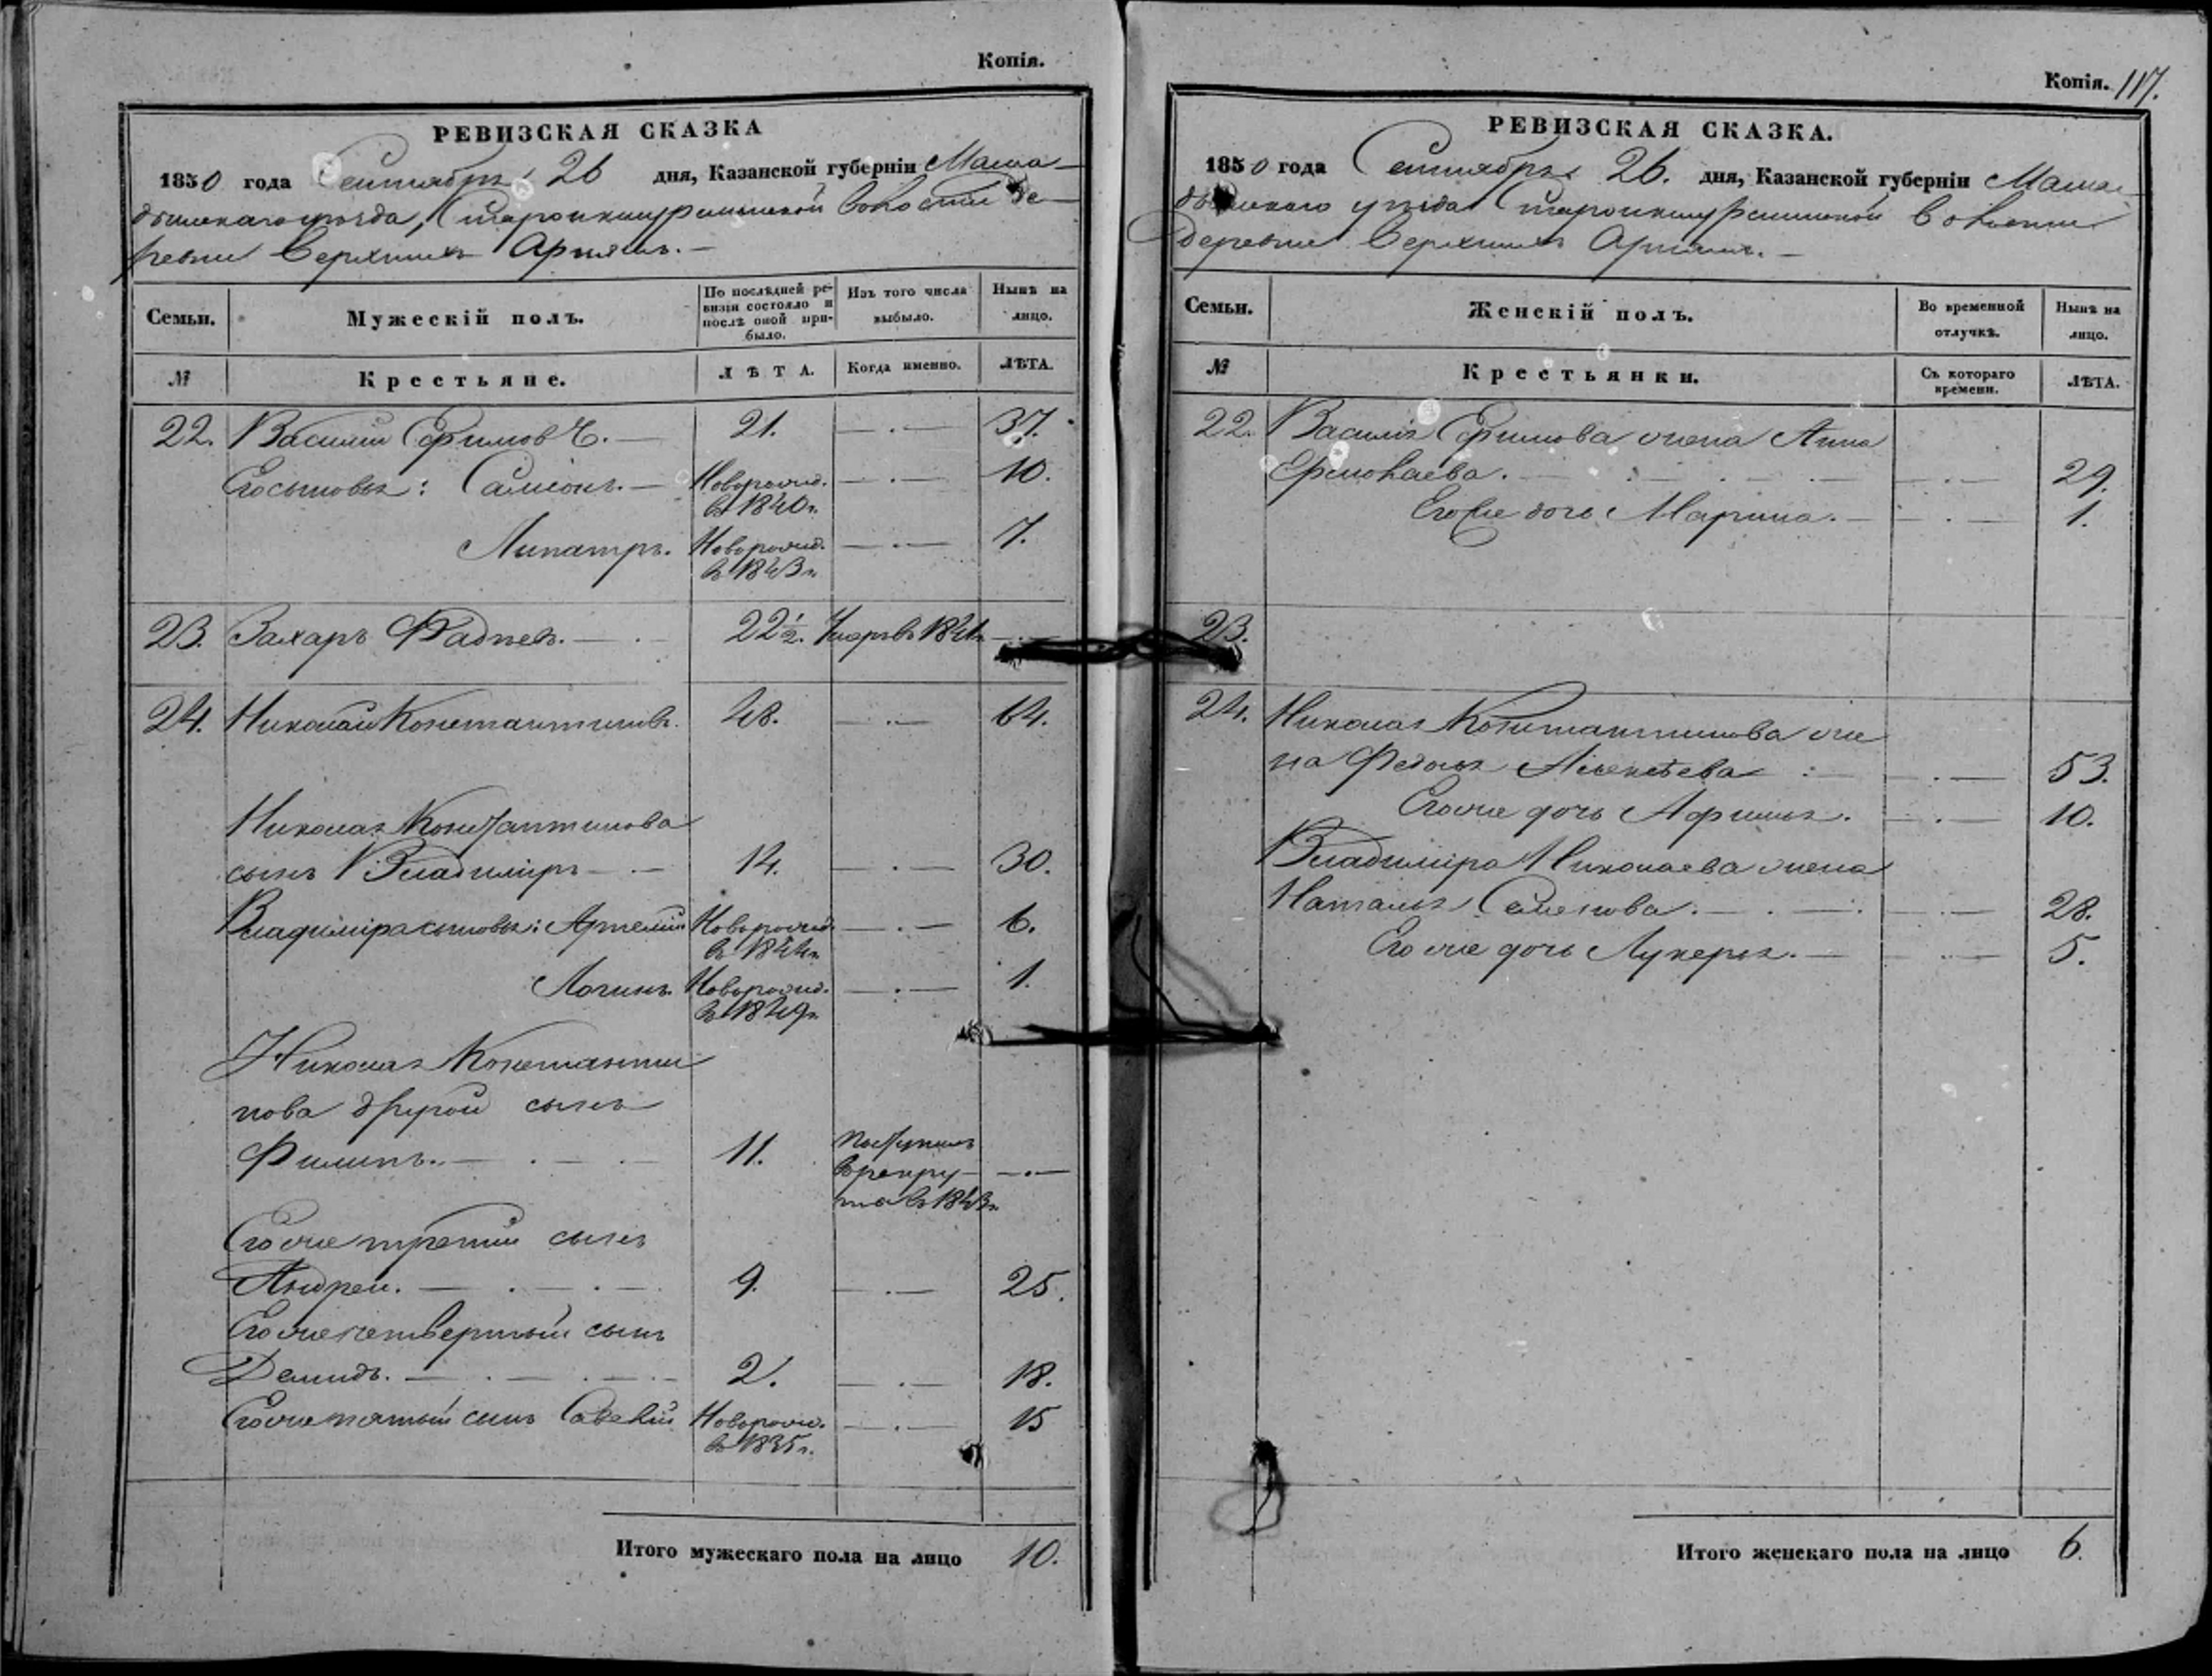 Копія.
РЕВИЗСКАЯ СКАЗКА
1850 года Сентября 26 дня, Казанской губерніи Мама-
дышскаго уѣзда, волости де-
ревни Верхнихъ Арняшъ. —
Семьи. Мужескій полъ. По послѣдней ре-визіи состояло и послѣ оной при-было. Изъ того числа выбыло. Нынѣ на лицо.
№ Крестьяне. ЛѢТА. Когда именно. ЛѢТА.
22. Василій Ефимовъ. — 21. — . — 37.
Его сыновья: Самсонъ. — Новорожд. — . — 10.
въ 1840 г.
Липатръ. Новорожд. — . — 7.
въ 1843 г.
23. Захаръ Фадѣевъ. — . 22 1/2. Умеръ въ 1841 г. — . —
24. Николай Константиновъ. 48. — . — 64.
Николая Константинова
сынъ Владиміръ — . — 14. — . — 30.
Владиміра сыновья: Артемій Новорожд. — . — 6.
въ 1844 г.
Логинъ. Новорожд. — . — 1.
въ 1849 г.
Николая Константи
нова другой сынъ
Филипъ. — . — . — 11. поступилъ
въ рекру- — . —
ты въ 1843 г.
Его же третій сынъ
Андрей. — . — . — 9. — . — 25.
Его же четвертый сынъ
Демидъ. — . — . — . — 2. — . — 18.
Его же пятый сынъ Савелій Новорожд. — . — 15
въ 1835 г.
Итого мужескаго пола на лицо 10.
Копія. 117.
РЕВИЗСКАЯ СКАЗКА.
1850 года Сентября 26. дня, Казанской губерніи Мама-
дышскаго уѣзда волости
деревни Верхнихъ Арняшъ. —
Семьи. Женскій полъ. Во временной отлучкѣ. Нынѣ на лицо.
№ Крестьянки. Съ котораго времени. ЛѢТА.
22. Василія Ефимова жена Анна
Ермолаева. — . — . — — . — 29.
Его же дочь Марина. — — . — 1.
23.
24. Николая Константинова же
на Федосья Алексѣева : — — . — 53.
Его же дочь Афимья. — . — 10.
Владиміра Николаева жена
Наталья Семенова. — . — . — . — 28.
Его же дочь Лукерья. — — . — 5.
Итого женскаго пола на лицо 6.